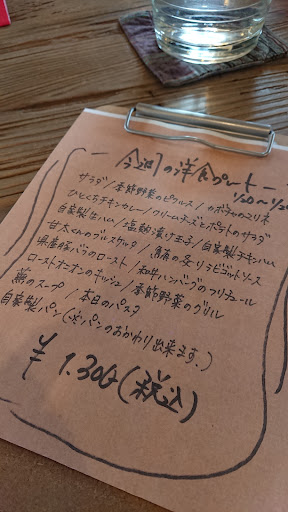 今週の洋食プレート
1/20〜1/2
サラダ/季節野菜のピクルス/カボチャのマリネ
ひとくちチキンカレー/クリームチーズとポテトのサラダ
自家製生ハム/塩麹漬け玉子/自家製チキンハム
甘えびのブルスケッタ/鯖の炙りラビゴットソース
県産豚バラのロースト/和牛ハンバーグの
ローストオニオンのキッシュ/季節野菜のグリル
のスープ/本日のパスタ
自家製パン(※パンのおかわり出来ます。)
¥1.300(税込)